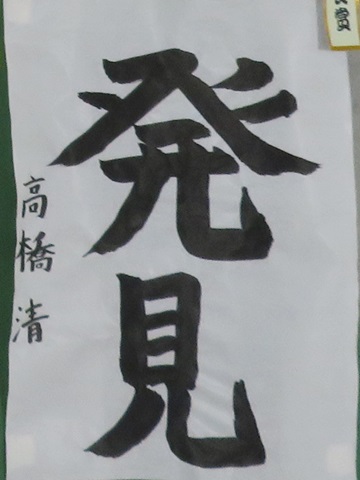 発見
高橋清
賞